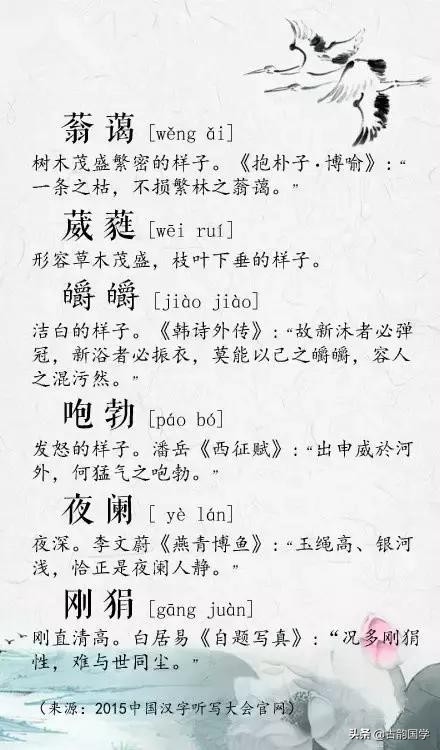 蓊蔼 [wěng ǎi]
树木茂盛繁密的样子。《抱朴子·博喻》:“
一条之枯，不损繁林之蓊蔼。”
葳蕤 [wēi ruí]
形容草木茂盛，枝叶下垂的样子。
皭皭 [jiào jiào]
洁白的样子。《韩诗外传》:“故新沐者必弹
冠，新浴者必振衣，莫能以己之皭皭，容人
之混污然。”
咆勃 [páo bó]
发怒的样子。潘岳《西征赋》:“出申威於河
外，何猛气之咆勃。”
夜阑 [ yè lán]
夜深。李文蔚《燕青博鱼》:“玉绳高、银河
浅，恰正是夜阑人静。”
刚狷 [gāng juàn]
刚直清高。白居易《自题写真》:“况多刚狷
性，难与世同尘。”
（来源：2015中国汉字听写大会官网）
头条 @古韵国学